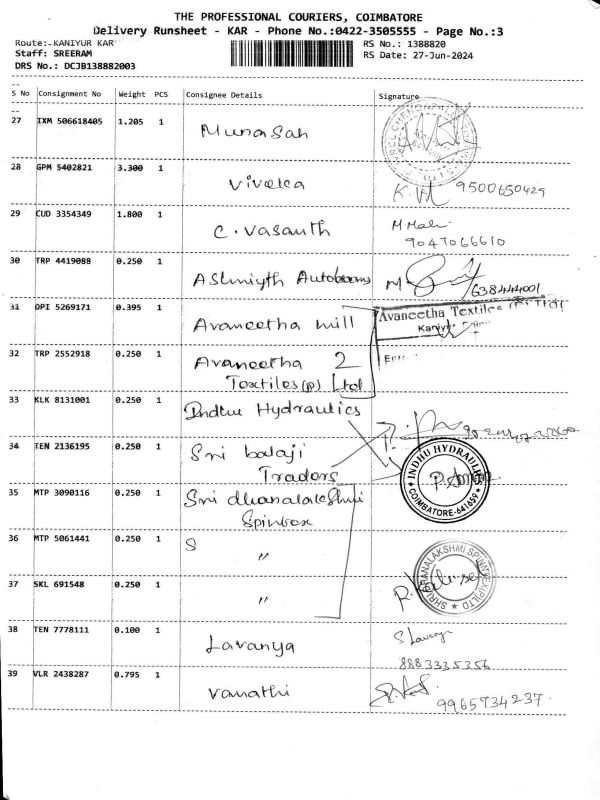 THE PROFESSIONAL COURIERS, COIMBATORE
Delivery Runsheet - KAR - Phone No.:0422-3505555 - Page No.:3
Route:-KANIYUR KAR
RS No.: 1388820
Staff: SREERAM
RS Date: 27-Jun-2024
DRS No.: DCJB138882003
S No Consignment No Weight PCS Consignee Details Signature
27 IXM 506618405 1.205 1
28 GPM 5402821 3.300 1 Viveka
9500650429
29 CUD 3354349 1.800 1 C. Vasanth
9047066610
30 TRP 4419088 0.250 1
31 DPI 5269171 0.395 1 Avaneetha mill
Avaneetha Textiles (P) Ltd
32 TRP 2552918 0.250 1 Avaneetha 2
Textiles (P) Ltd
33 KLK 8131001 0.250 1 Indhu Hydraulics
34 TEN 2136195 0.250 1 Sri balaji
Tradors
INDHU HYDRAULICS
COIMBATORE-641659
35 MTP 3090116 0.250 1 Sri dhanalakshmi
Spintex
36 MTP 5061441 0.250 1 S
"
37 SKL 691548 0.250 1 "
38 TEN 7778111 0.100 1 Lavanya
8883335356
39 VLR 2438287 0.795 1 Vanathi
9965734237.